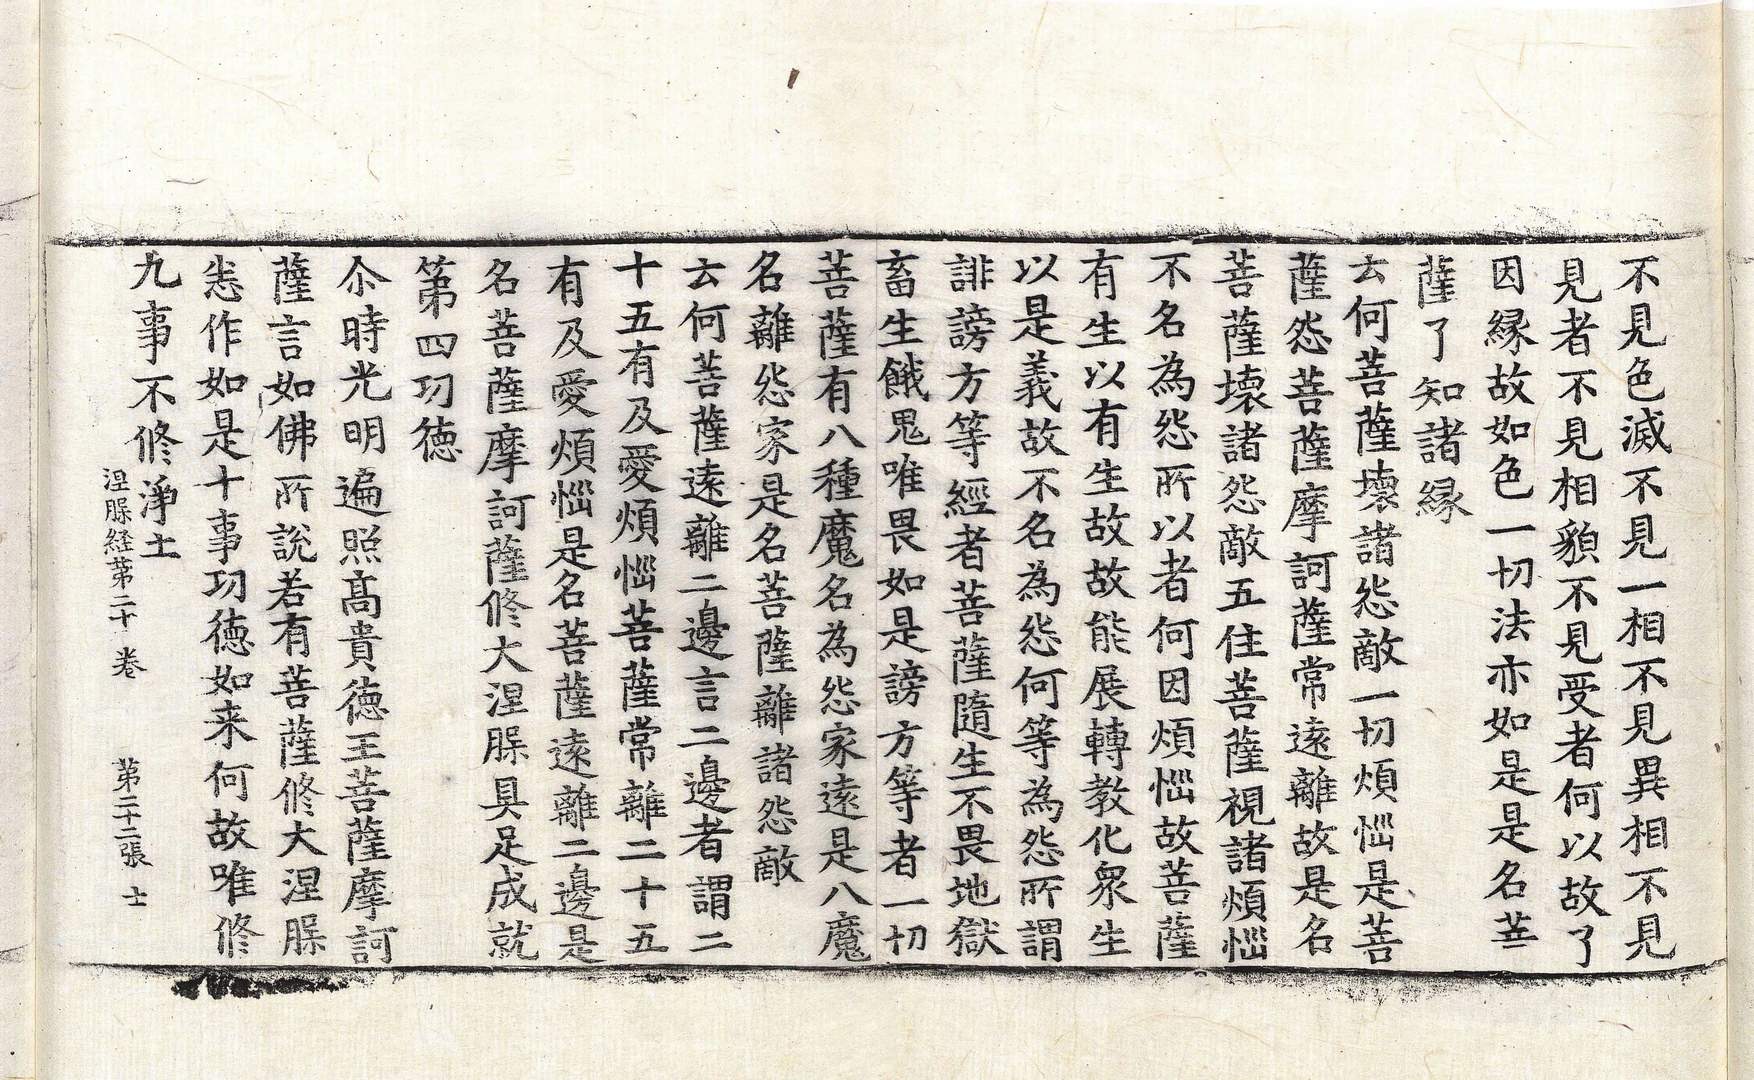 不見色滅不見一相不見異相不見
見者不見相貌不見受者何以故了
因縁故如色一切法亦如是是名菩
薩了知諸縁
云何菩薩壞諸怨敵一切煩惱是菩
薩怨菩薩摩訶薩常遠離故是名
菩薩壞諸怨敵五住菩薩視諸煩惱
不名為怨所以者何因煩惱故菩薩
有生以有生故故能展轉教化衆生
以是義故不名為怨何等為怨所謂
誹謗方等經者菩薩隨生不畏地獄
畜生餓鬼唯畏如是謗方等者一切
菩薩有八種魔名為怨家遠是八魔
名離怨家是名菩薩離諸怨敵
云何菩薩遠離二邊言二邊者謂二
十五有及愛煩惱菩薩常離二十五
有及愛煩惱是名菩薩遠離二邊是
名菩薩摩訶薩修大涅槃具足成就
第四功徳
尒時光明遍照髙貴徳王菩薩摩訶
薩言如佛所說若有菩薩修大涅槃
悉作如是十事功徳如来何故唯修
九事不修淨土
涅槃経第二十卷 第二十二張 士